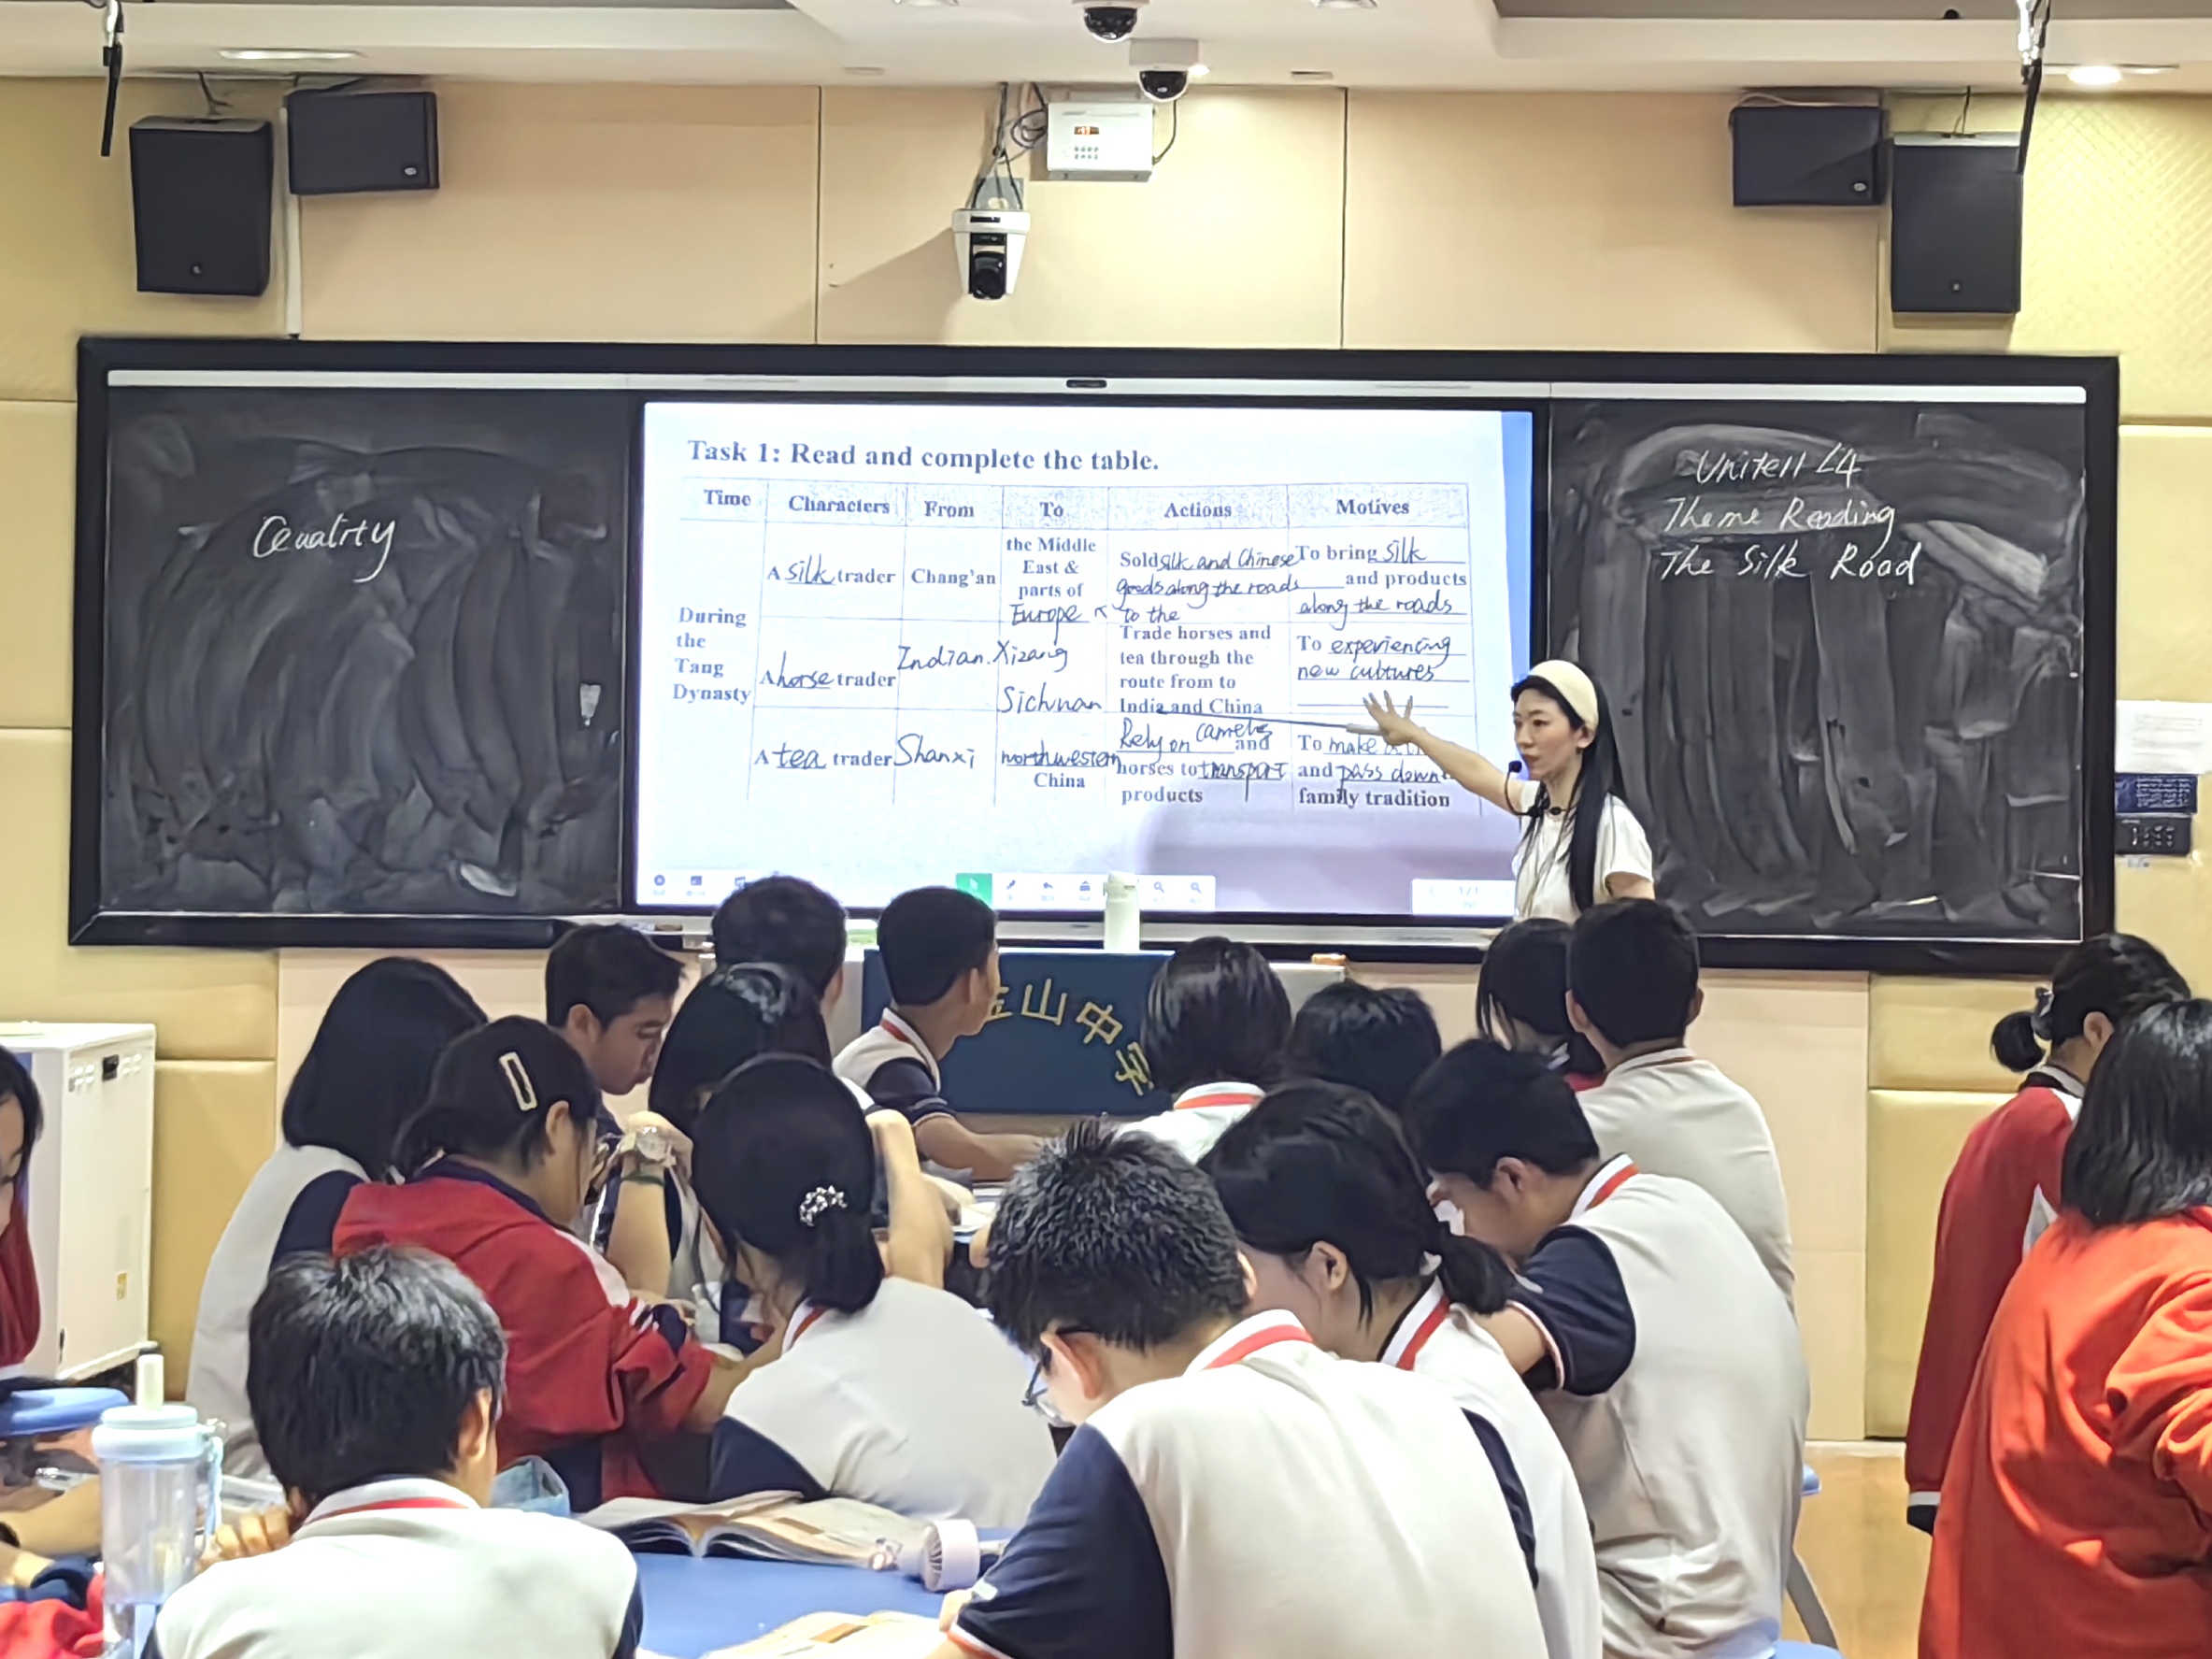 Quality
Task 1: Read and complete the table.
Time Characters From To Actions Motives
During
the
Tang
Dynasty
A silk trader
Chang'an
the Middle
East &
parts of
Europe
Sold silk and Chinese
goods along the roads
to the
To bring silk
and products
along the roads
A horse trader
Indian. Xizang
Sichuan
Trade horses and
tea through the
route from to
India and China
To experiencing
new cultures
A tea trader
Shanxi
northwestern
China
Rely on camels and
horses to transport
products
To make a
and pass down
family tradition
1/1
Unit11 L4
Theme Reading
The Silk Road
山中学